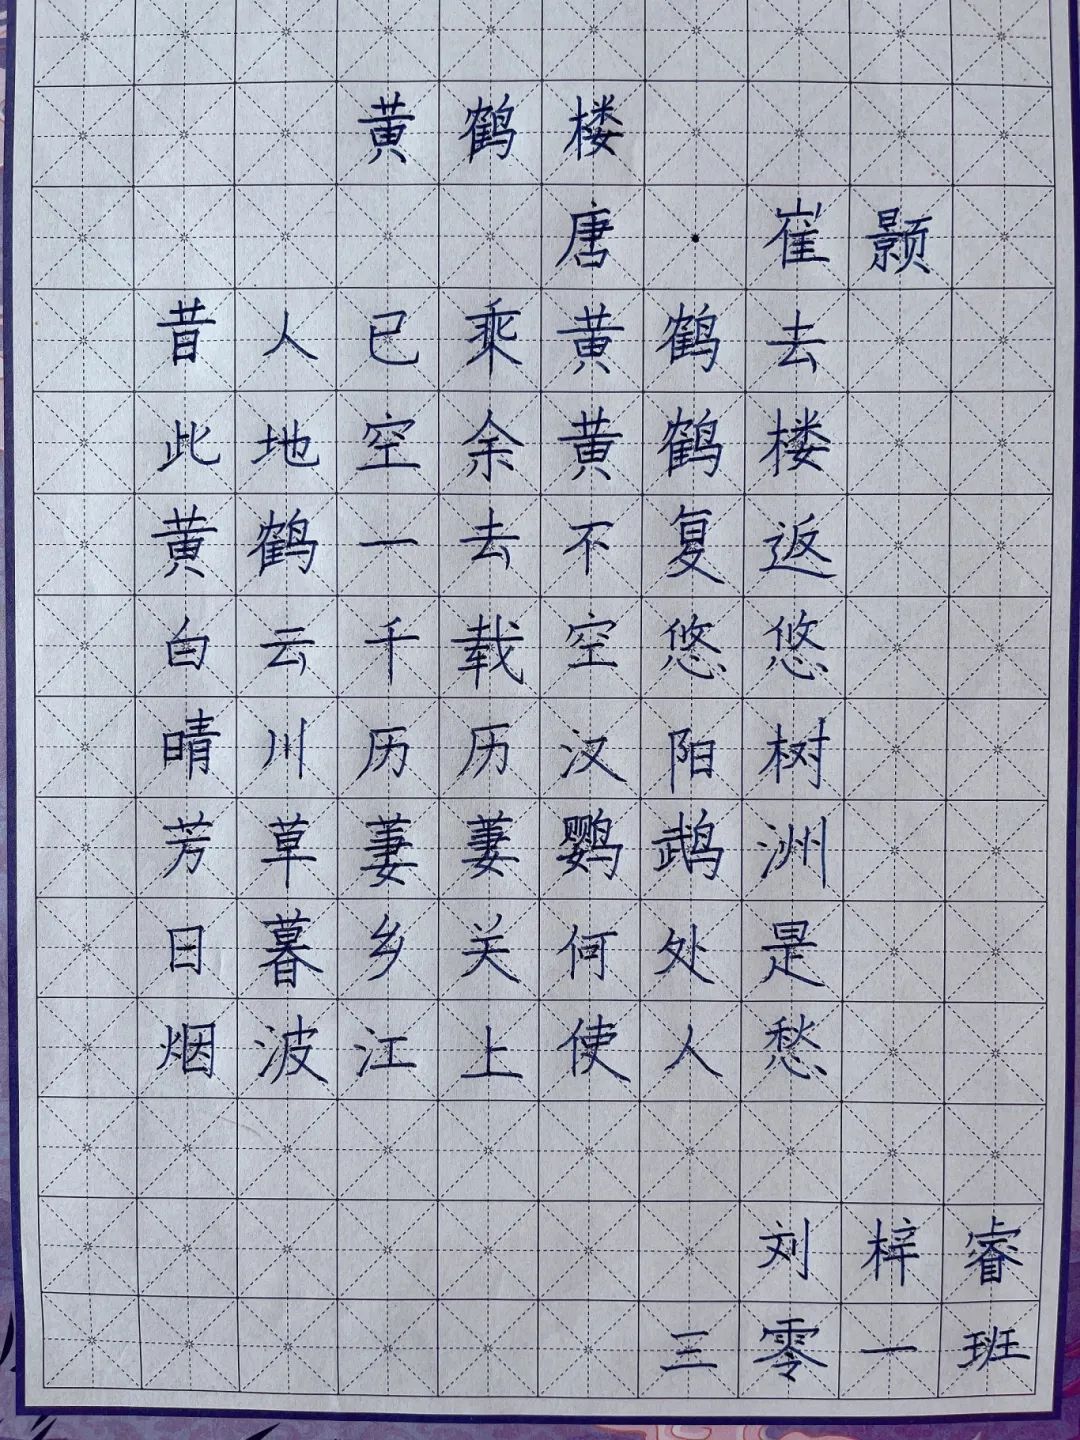 黄鹤楼
唐·崔颢
昔人已乘黄鹤去
此地空余黄鹤楼
黄鹤一去不复返
白云千载空悠悠
晴川历历汉阳树
芳草萋萋鹦鹉洲
日暮乡关何处是
烟波江上使人愁
刘梓睿
三零一班